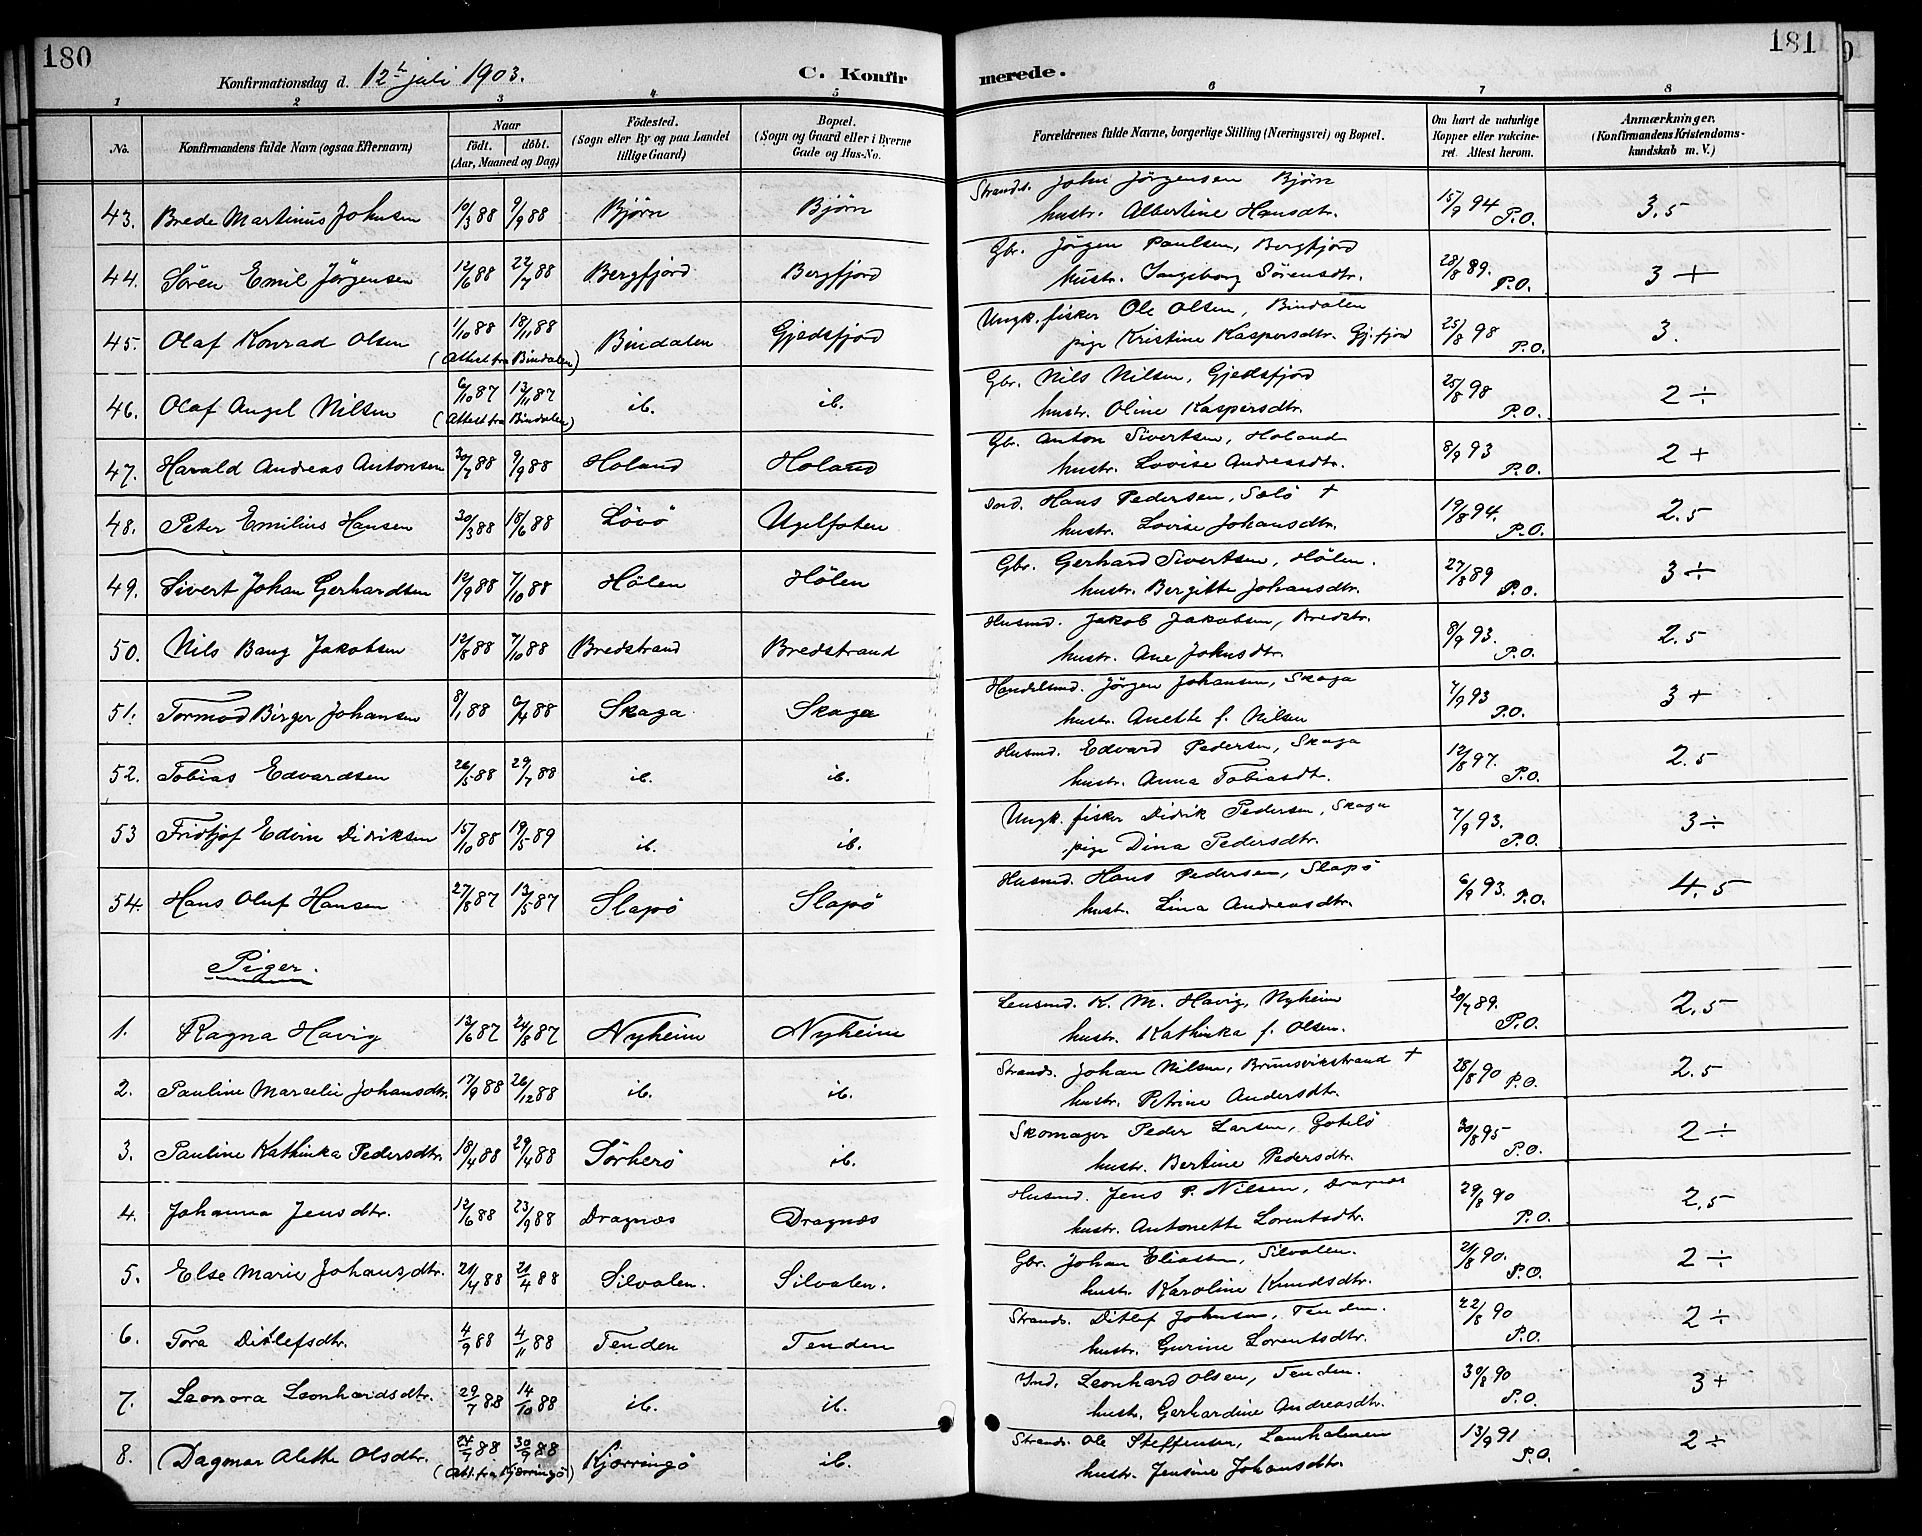 180
181
Konfirmationsdag d. 12t juli 1903.
C. Konfirmerede.
1 2 3 4 5 6 7 8
No.
Konfirmandens fulde Navn (ogsaa Efternavn)
Naar
födt. döbt.
(Aar, Maaned og Dag)
Födested.
(Sogn eller By og paa Landet
tillige Gaard)
Bopæl.
(Sogn og Gaard eller i Byerne
Gade og Hus-No.
Forældrenes fulde Navne, borgerlige Stilling (Næringsvei) og Bopæl.
Om havt de naturlige
Kopper eller vaccine-
ret. Attest herom.
Anmærkninger.
(Konfirmandens Kristendoms-
kundskab m. V.)
43. Brede Martinus Johnsen 10/3 88 9/9 88 Bjørn Bjørn Strands. John Jörgensen Bjørn 15/9 94 P.O. 3,5
hustr. Albertine Hansdtr.
44. Sören Emil Jörgensen 12/6 88 22/7 88 Bergfjord Bergfjord Gbr. Jörgen Paulsen, Bergfjord 28/8 89. P.O. 3 +
hustr. Ingeborg Sörensdtr.
45. Olaf Konrad Olsen 1/10 88 18/11 88 Bindalen Gjedsfjord Ungk. fisker Ole Olsen, Bindalen 25/8 98 P.O. 3.
(Attest fra Bindalen) pige Kristine Kaspersdtr. Gj.fjord
46. Olaf Angel Nilsen 6/10 87 13/11 87 ib. ib. Gbr. Nils Nilsen, Gjedsfjord 25/8 98 P.O. 2 ÷
(Attest fra Bindalen) hustr. Oline Kaspersdtr.
47. Harald Andreas Antonsen 30/7 88 9/9 88 Holand Holand Gbr. Anton Sivertsen, Holand 8/9 93 P.O. 2 +
hustr. Lovise Andreasdtr.
48. Peter Emilius Hansen 30/3 88 18/6 88 Lövö Ugelfoten Ind. Hans Pedersen, Solö + 19/8 94. P.O. 2.5
hustr. Lovise Johansdtr.
49. Sivert Johan Gerhardsen 12/9 88 7/10 88 Hölen Hölen Gbr. Gerhard Sivertsen, Hölen. 27/8 89 P.O. 3 ÷
hustr. Bergitte Johansdtr.
50. Nils Bang Jakobsen 12/8 88 7/10 88 Bredstrand Bredstrand Husmd. Jakob Jakobsen, Bredstr. 8/9 93. P.O. 2.5
hustr. Ane Johnsdtr.
51. Tormod Birger Johansen 8/1 88 6/4 88 Skaga Skaga Handelsmd. Jörgen Johansen, Skaga 7/9 93 P.O. 3 +
hustr. Anette f. Nilsen
52. Tobias Edvardsen 26/5 88 29/7 88 ib. ib. Husmd. Edvard Pedersen, Skaga 12/8 97. P.O. 2.5
hustr. Anna Tobiasdt.
53 Fridtjof Edvin Didriksen 15/10 88 19/5 89 ib. ib. Ungk. fisker Didrik Pedersen, Skaga 7/9 93. P.O. 3 ÷
pige Dina Pedersdtr.
54. Hans Oluf Hansen 27/8 87 13/5 87 Slapö Slapö Husmd. Hans Pedersen, Slapö 6/9 93. P.O. 4.5
hustr. Lina Andreasdtr.
Piger.
1. Ragna Havig 13/6 87 24/8 87 Nyheim Nyheim Lensmd. K. M. Havig, Nyheim 20/7 89. P.O. 2,5
hustr. Kathinka f. Olsen.
2. Pauline Marselie Johansdtr. 17/9 88 26/12 88 ib. ib. Strands. Johan Nilsen, Brunsvikstrand + 28/8 90 P.O. 2.5
hustr. Petrine Andersdtr.
3. Pauline Kathinka Pedersdtr. 18/4 88 29/4 88 Sörherö ib. Skomager Peder Larsen, 30/8 95 P.O. 2 ÷
hustr. Bertine Pedersdtr.
4. Johanna Jensdtr. 12/6 88 23/9 88 Dragnæs Dragnæs Husmd. Jens P. Nilsen, Dragnæs 29/8 90 P.O. 2,5
hustr. Antonette Lorentsdtr.
5. Else Marie Johansdtr. 21/4 88 21/4 88 Silvalen. Silvalen. Gbr. Johan Eliassen, Silvalen. 21/8 90. P.O. 2 ÷
hustr. Karoline Knudsdtr.
6. Tora Ditlefsdtr. 4/9 88 4/11 88 Tenden Tenden Strands. Ditlef Johnsen, Tenden. 22/8 90 P.O. 2 ÷
hustr. Gurine Lorentsdtr.
7. Leonora Leonhardsdtr. 29/7 88 14/10 88 ib. ib. Ind. Leonhard Olsen, Tenden. 30/8 90 P.O. 3 +
hustr. Gerhardine Andreasdtr.
8. Dagmar Alette Olsdtr. 24/7 88 30/9 88 Kjærringö ib. Strands. Ole Steffensen, 13/9 91 P.O. 2 ÷
(Att. fra Kjærringö) hustr. Jensine Johansdtr.